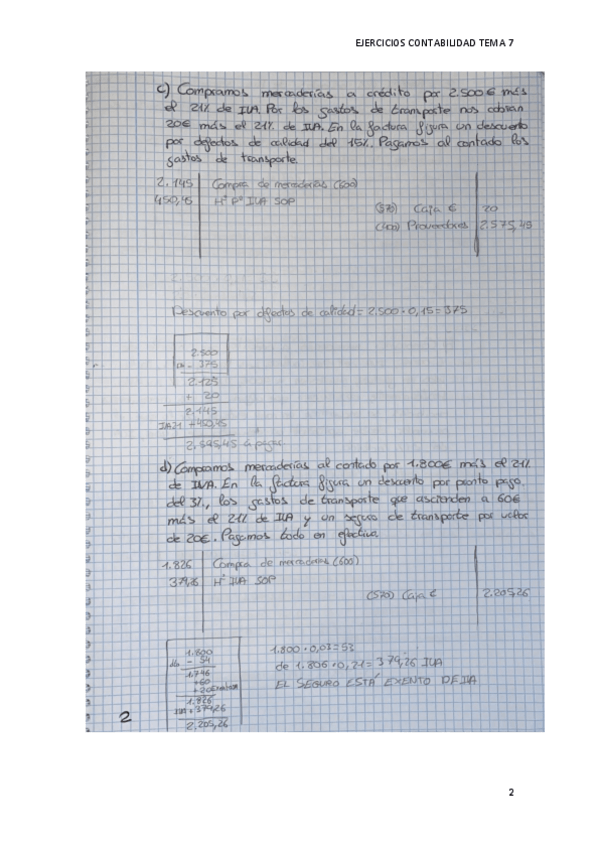 EJERCICIOS CONTABILIDAD TEMA 7
c) Compramos mercaderías a crédito por 2.500€ más
el 21% de IVA. Por los gastos de transporte nos cobran
20€ más el 21% de IVA. En la factura figura un descuento
por defectos de calidad del 15%. Pagamos al contado los
gastos de transporte.
2.145 Compra de mercaderías (600)
450,45 Hª Pª IVA SOP
(570) Caja € 20
(400) Proveedores 2.575,45
Descuento por defectos de calidad = 2.500 · 0,15 = 375
2.500
- 375
2.125
+ 20
2.145
+450,45
2.595,45 a pagar
d) Compramos mercaderías al contado por 1.800€ más el 21%
de IVA. En la factura figura un descuento por pronto pago
del 3%, los gastos de transporte que ascienden a 60€
más el 21% de IVA y un seguro de transporte por valor
de 20€. Pagamos todo en efectivo.
1.826 Compra de mercaderías (600)
379,26 Hª IVA SOP
(570) Caja € 2.205,26
1.800
- 54
1.746
+60
+20
1.826
IVA +379,26
2.205,26
1.800 · 0,03 = 53
de 1.806 · 0,21 = 379,26 IVA
EL SEGURO ESTÁ EXENTO DE IVA
2
2